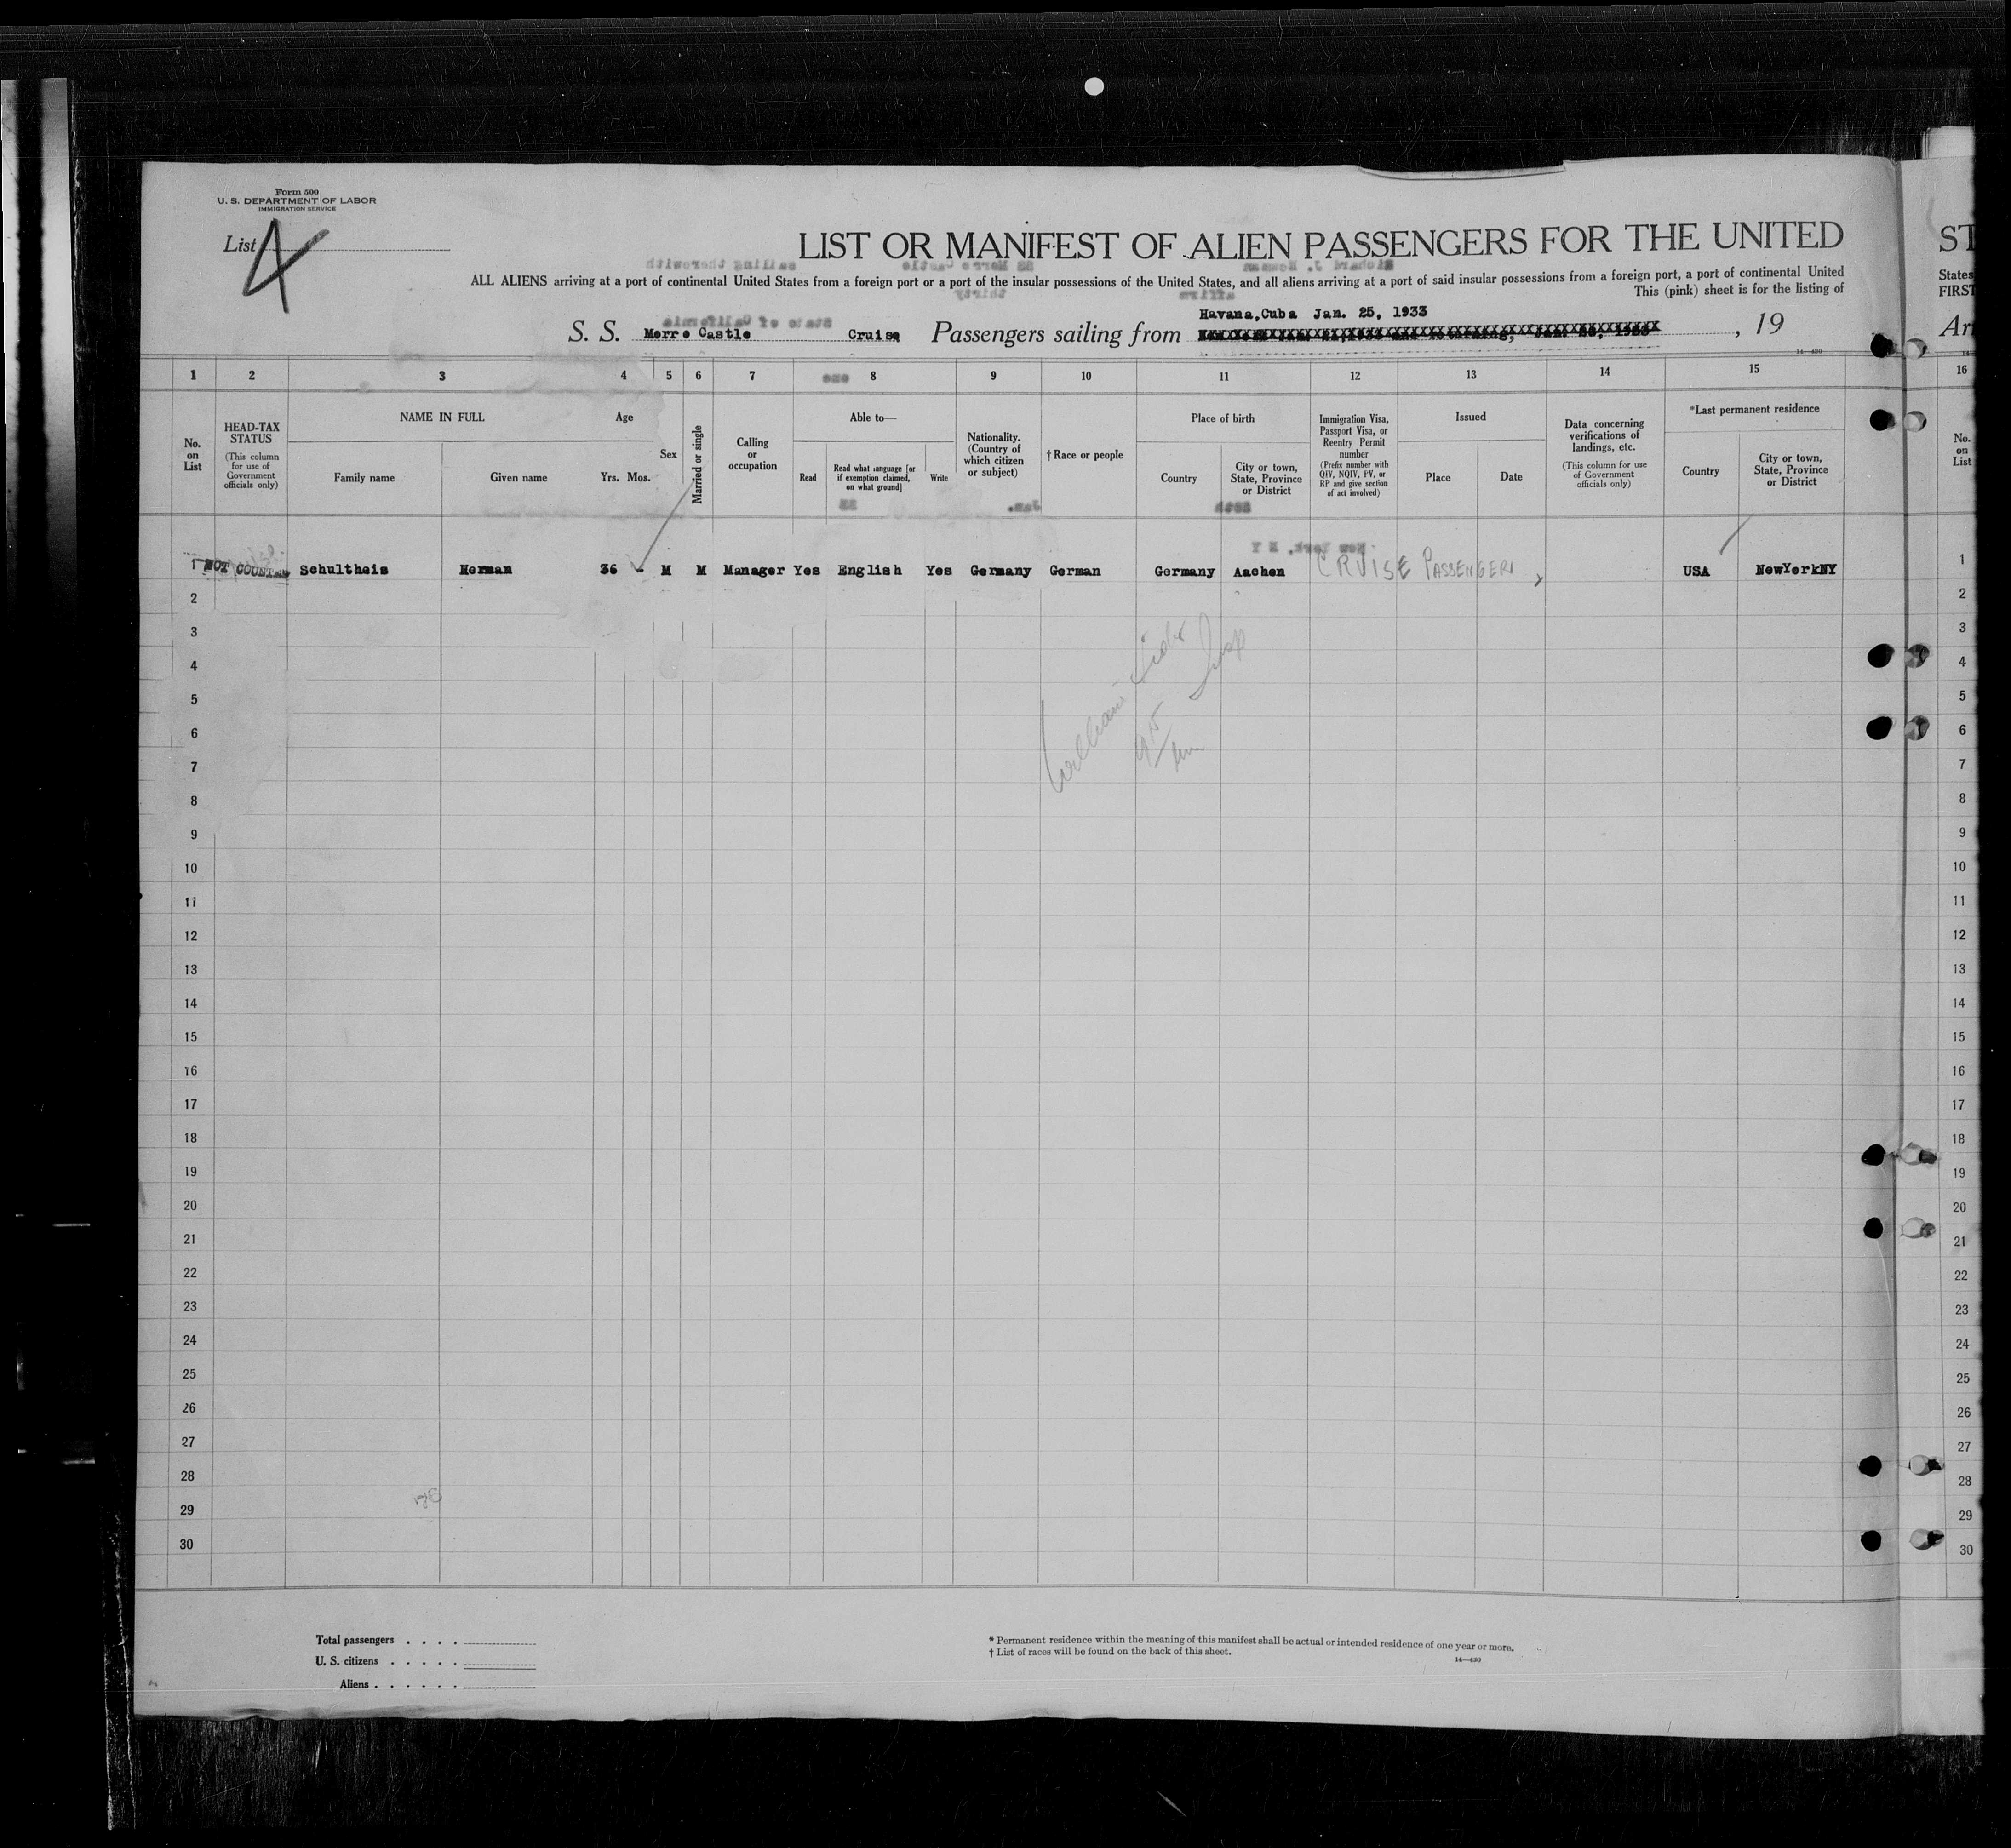 Form 500
U. S. DEPARTMENT OF LABOR
IMMIGRATION SERVICE
List 4
LIST OR MANIFEST OF ALIEN PASSENGERS FOR THE UNITED
ST
ALL ALIENS arriving at a port of continental United States from a foreign port or a port of the insular possessions of the United States, and all aliens arriving at a port of said insular possessions from a foreign port, a port of continental United
States
This (pink) sheet is for the listing of
FIRST
Havana,Cuba Jan. 25, 1933
S. S. Morro Castle Cruise Passengers sailing from , 19
Arr
14—430
1 2 3 4 5 6 7 8 9 10 11 12 13 14 15 16
No. on List
HEAD-TAX STATUS
(This column for use of Government officials only)
NAME IN FULL
Family name
Given name
Age
Yrs. Mos.
Sex
Married or single
Calling or occupation
Able to—
Read
Read what language [or if exemption claimed, on what ground]
Write
Nationality. (Country of which citizen or subject)
†Race or people
Place of birth
Country
City or town, State, Province or District
Immigration Visa, Passport Visa, or Reentry Permit number
(Prefix number with QIV, NQIV, PV, or RP and give section of act involved)
Issued
Place
Date
Data concerning verifications of landings, etc.
(This column for use of Government officials only)
*Last permanent residence
Country
City or town, State, Province or District
No. on List
1 NOT COUNTED Schultheis Herman 36 - M M Manager Yes English Yes Germany German Germany Aachen CRUISE PASSENGER USA NewYorkNY 1
2 2
3 3
4 4
5 5
6 6
7 7
8 8
9 9
10 10
11 11
12 12
13 13
14 14
15 15
16 16
17 17
18 18
19 19
20 20
21 21
22 22
23 23
24 24
25 25
26 26
27 27
28 28
29 29
30 30
Total passengers . . . .
U. S. citizens . . . . .
Aliens . . . . . .
* Permanent residence within the meaning of this manifest shall be actual or intended residence of one year or more.
† List of races will be found on the back of this sheet.
14—430